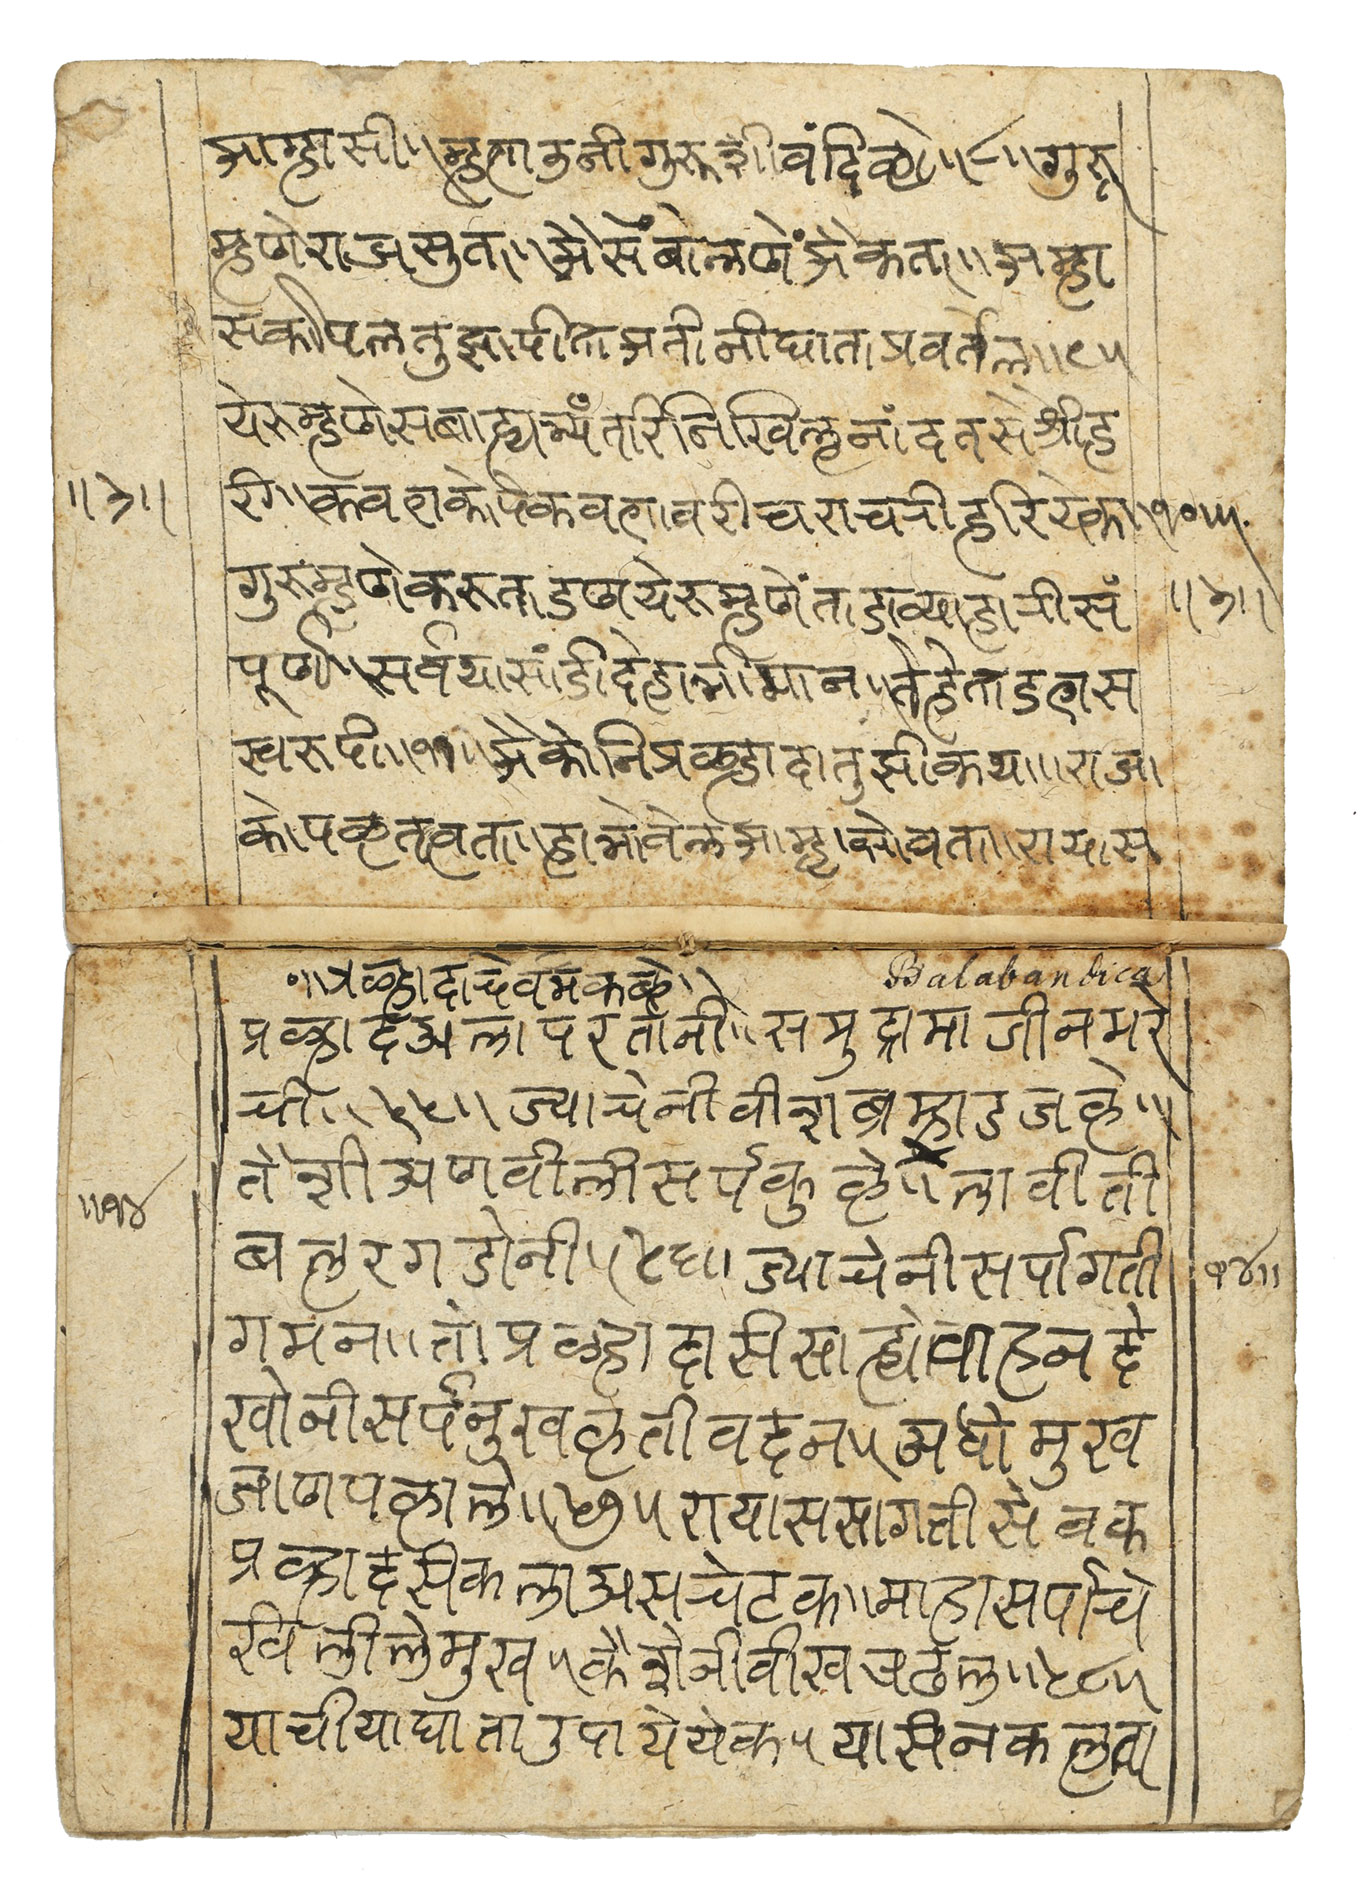 आम्हासी॥ म्हणउनी गुरूशी वंदिले॥८॥ गुरू
म्हणे राजसुता॥ अैसें बोलणें अैकता॥ अम्हा
स कोपल तुझा पीता अती नीघाता प्रवर्तेल॥९॥
येरु म्हणे सबाह्य भ्यंतरि निखिल नांदतसे श्रीह
रि॥ कवण कोपे कवणावरी चराचरी हरि येक॥१०॥
॥३॥
गुरु म्हणे करु ताडण येरु म्हणें ताडाव्याहानी सं
॥३॥
पूर्ण॥ सर्वथा सांडी देहाभीमान॥ तेहे ताडणस
स्वरुपी॥११॥ अैकोनि प्रल्हादा तुझी कथा॥ राजा
कोपल तत्वता॥ हा भोवेल आम्हा भोवता॥ रायास
॥ प्रल्हादाचे वर्म कळे॥
Balabandica
प्रल्हाद अला परतोनी॥ समुद्रामाजी न मरे
ची॥५५॥ ज्याचेनी वीशे ब्रम्हाड जळे॥
तैशी अणवीली सर्पकुळे॥ लावीती
॥१४
बळ रगडोनी॥५६॥ ज्याचेनी सर्पा गती
१४॥
गमन॥ तो प्रल्हादासि साह्ये वाहन दे
खोनी सर्प नुखळती वदन॥ अधोमुख
जाण पळाले॥५७॥ रायास सागती सेवक
प्रल्हाद सीकला अस चेटक॥ माहासर्पाचे
खिलीले मुख॥ कैशेनी वीख चढेल॥५८॥
याचीया घाता उपाये येक॥ यासि न कलता